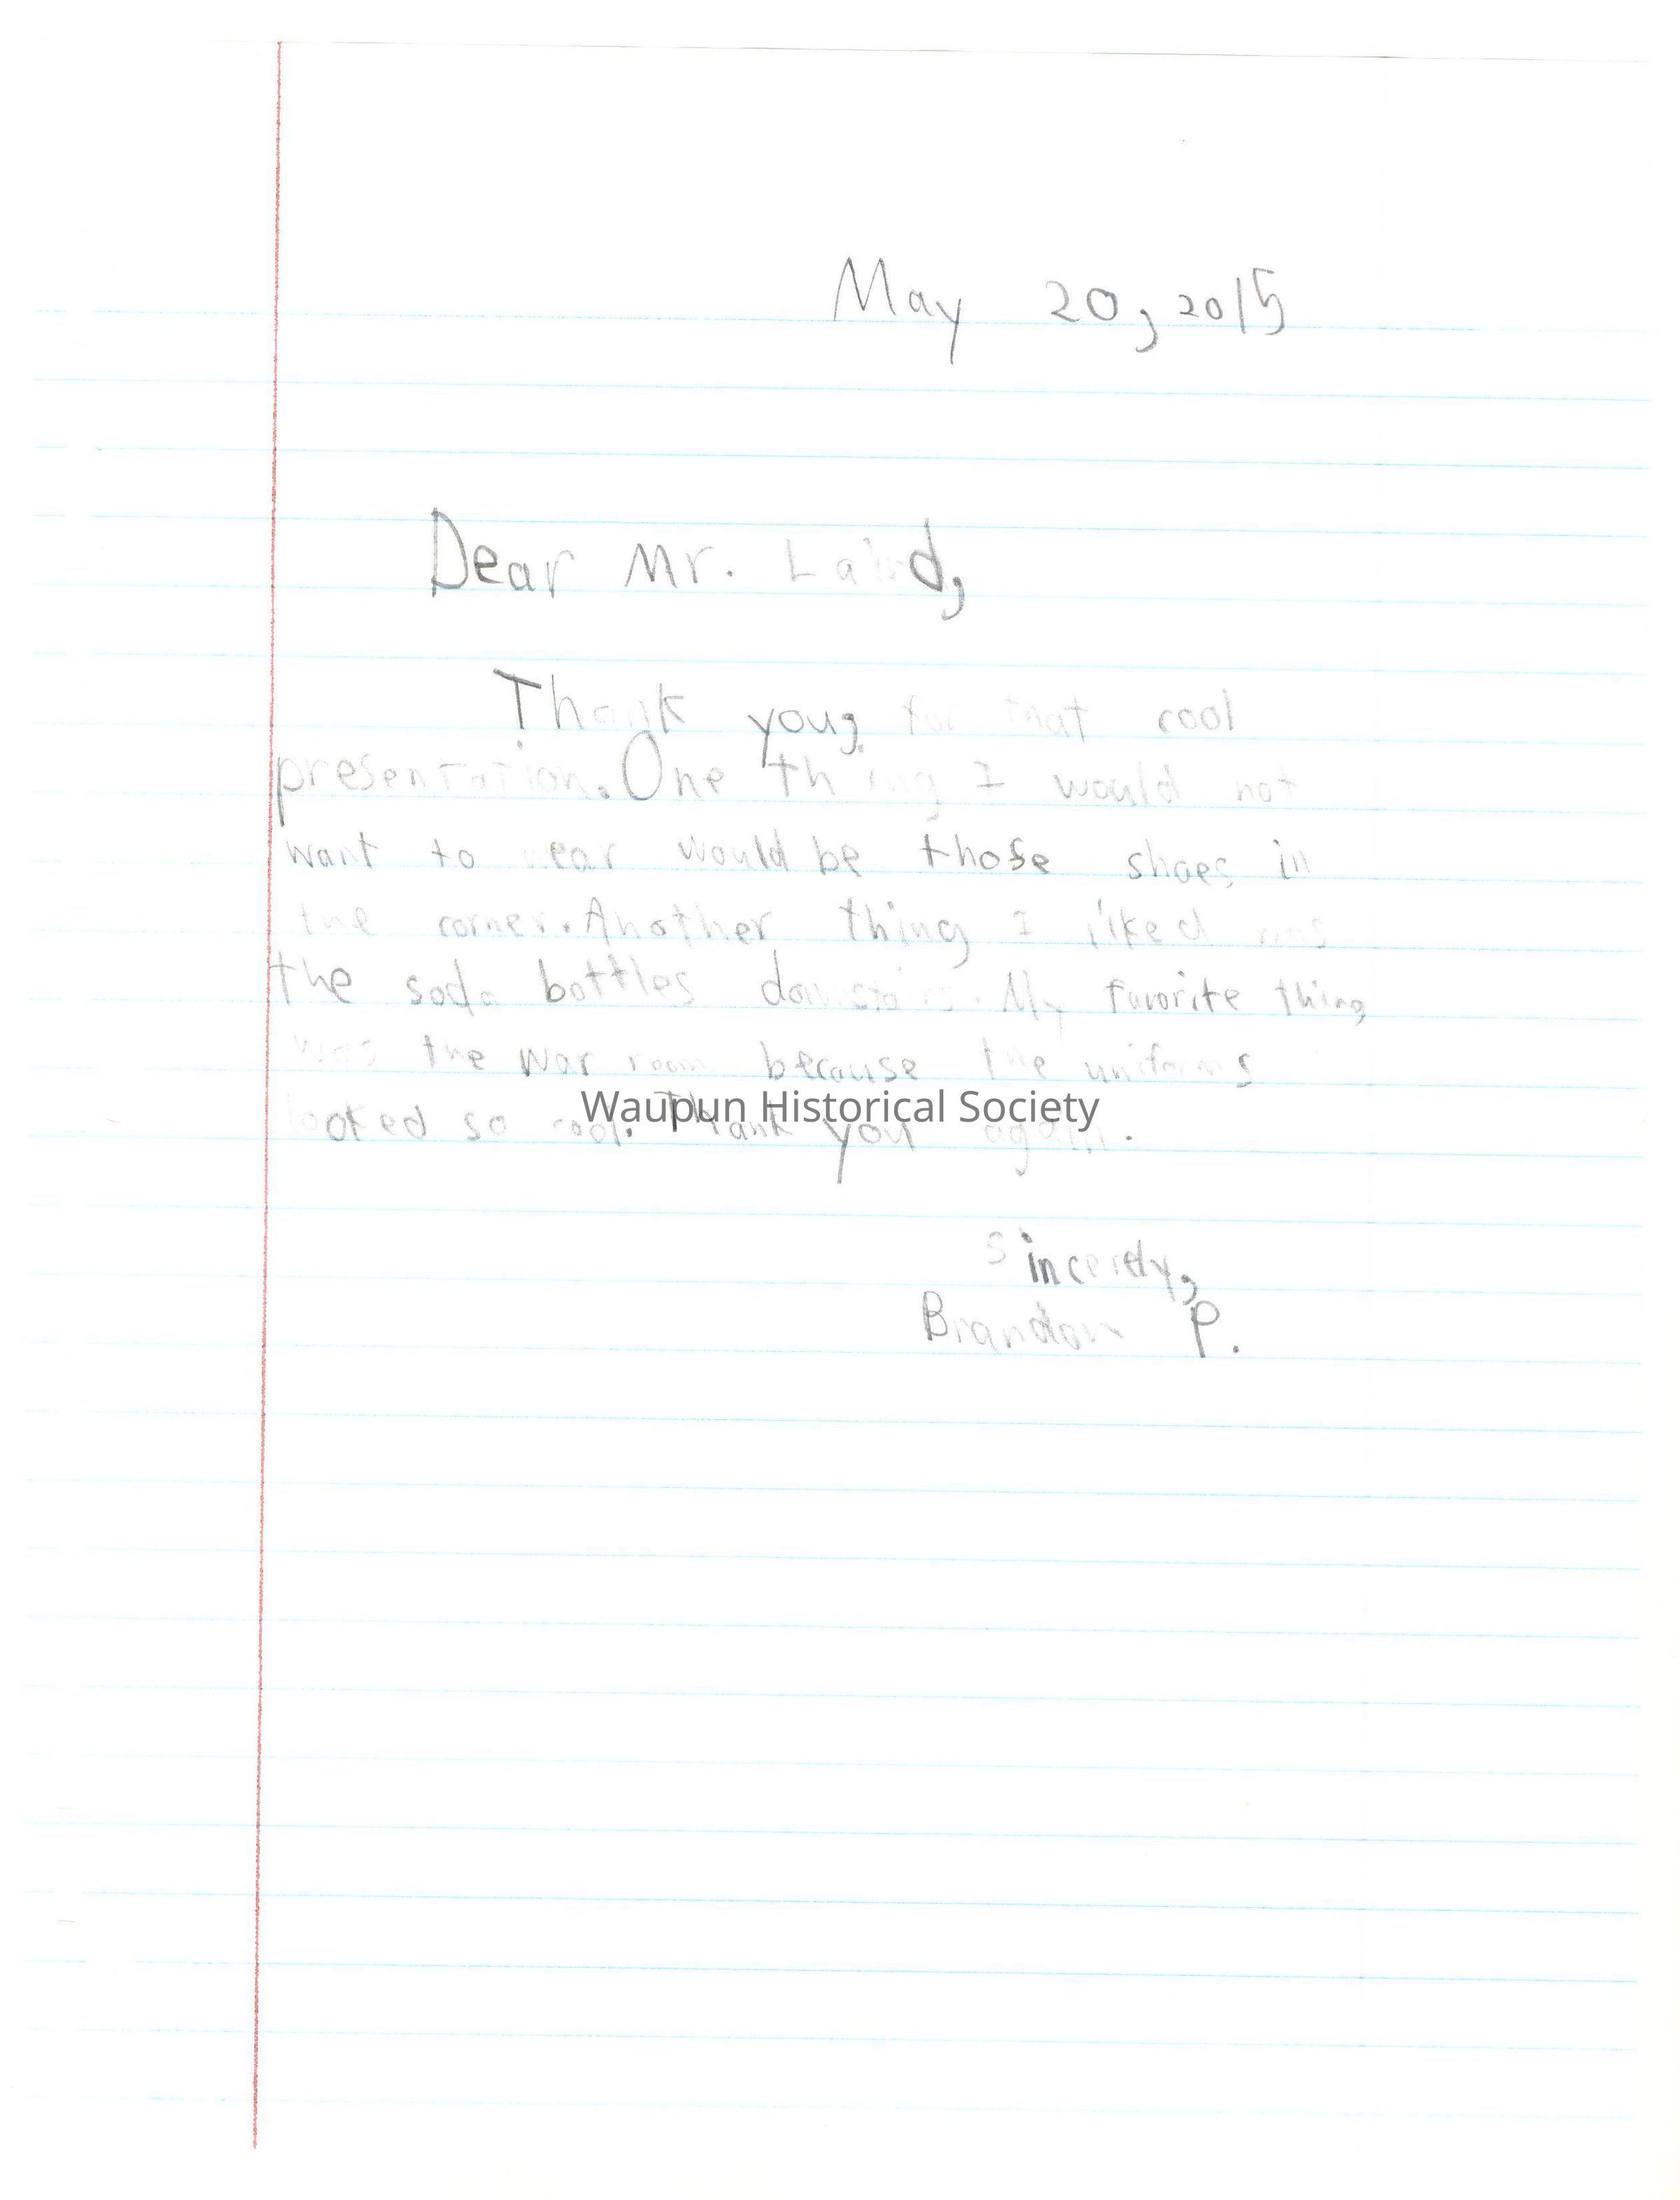 May 20, 2015
Dear Mr. Laird,
Thank you, for that cool
presentation. One thing I would not
want to wear would be those shoes in
the corner. Another thing I liked was
the soda bottles downstairs. My favorite thing
was the war room because the uniforms
looked so cool. Thank you again.
Waupun Historical Society
Sincerely,
Brandon P.